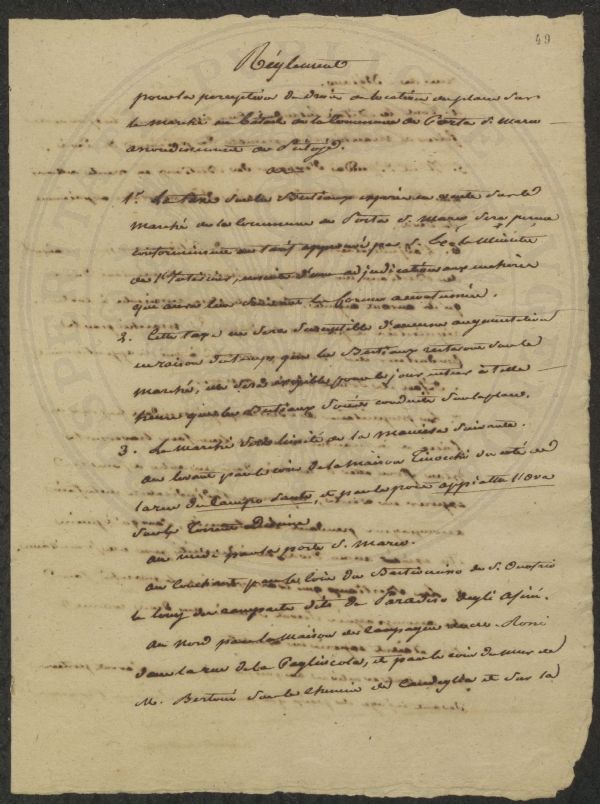 49
Réglement
pour la perception du droit de location de place sur
le Marché au Bétail de la Commune de Porta S. Marco
arrondissement de Pistoje.
1.° La taxe sur les Bestiaux exposés en vente sur le
Marché de la Commune de Porta S. Marco sera perçue
conformément au tarif approuvé par S. Ex. le Ministre
de l'Intérieur, ensuite d'une adjudication aux enchères
qui aura lieu suivant les formes accoutumées.
2. Cette taxe ne sera susceptible d'aucune augmentation
en raison du temps que les Bestiaux resteront sur le
marché, elle sera exigible pour le jour entier à telle
heure que les Bestiaux soient conduits sur la place.
3. Le Marché sera limité de la manière suivante.
Au levant par le coin de la Maison du coté de
la rue du Campo Santo, et par le appiatta l'Ova
sur le
Au midi par la porte S. Marco.
Au Couchant par le coin du de S. Onofrio
le long des remparts dits du Paradiso degli Asini.
Au Nord par la Maison de Campagne
dans la rue de la et par le coin du mur de
M. sur le chemin de Candeglia et sur la